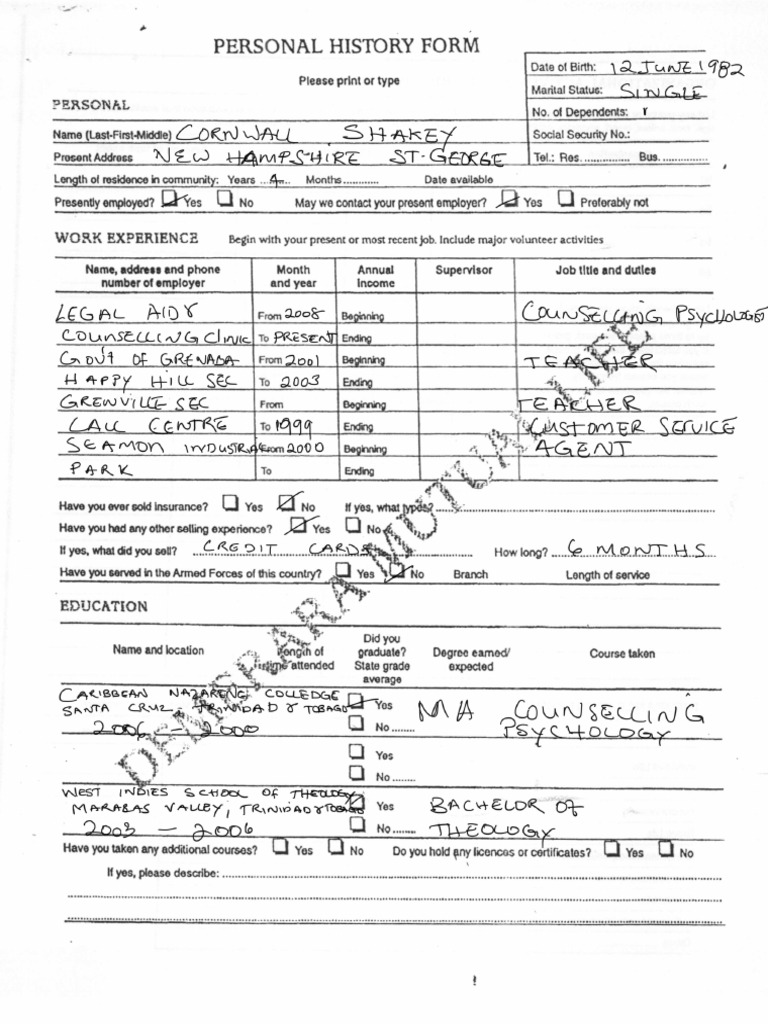 PERSONAL HISTORY FORM
Please print or type
Date of Birth: 12 JUNE 1982
Marital Status: SINGLE
PERSONAL
No. of Dependents:
Name (Last-First-Middle) CORNWALL SHAKEY
Social Security No.:
Present Address NEW HAMPSHIRE ST. GEORGE
Tel.: Res. ............... Bus. ...............
Length of residence in community: Years ... Months............ Date available
Presently employed? ☑ Yes ☐ No May we contact your present employer? ☑ Yes ☐ Preferably not
WORK EXPERIENCE Begin with your present or most recent job. Include major volunteer activities
Name, address and phone number of employer Month and year Annual Income Supervisor Job title and duties
LEGAL AID & From 2008 Beginning COUNSELLING PSYCHOLOGIST
COUNSELLING CLINIC To PRESENT Ending
GOVT OF GRENADA From 2001 Beginning TEACHER
HAPPY HILL SEC To 2003 Ending
GRENVILLE SEC From Beginning TEACHER
CALL CENTRE To 1999 Ending CUSTOMER SERVICE
SEAMON INDUSTRIAL From 2000 Beginning AGENT
PARK To Ending
Have you ever sold insurance? ☐ Yes ☑ No If yes, what types? ...............
Have you had any other selling experience? ☑ Yes ☐ No
If yes, what did you sell? CREDIT CARDS How long? 6 MONTHS
Have you served in the Armed Forces of this country? ☐ Yes ☑ No Branch Length of service
DEMERARA MUTUAL LIFE
EDUCATION
Name and location Length of time attended Did you graduate? State grade average Degree earned/ expected Course taken
CARIBBEAN NAZARENE COLLEDGE
SANTA CRUZ, TRINIDAD & TOBAGO ☑ Yes MA COUNSELLING
2006 - 2000 ☐ No ........ PSYCHOLOGY
☐ Yes
☐ No ........
WEST INDIES SCHOOL OF THEOLOGY
MARABAS VALLEY, TRINIDAD & TOBAGO ☑ Yes BACHELOR OF
2003 - 2006 ☐ No ........ THEOLOGY
Have you taken any additional courses? ☐ Yes ☐ No Do you hold any licences or certificates? ☐ Yes ☐ No
If yes, please describe: ...............